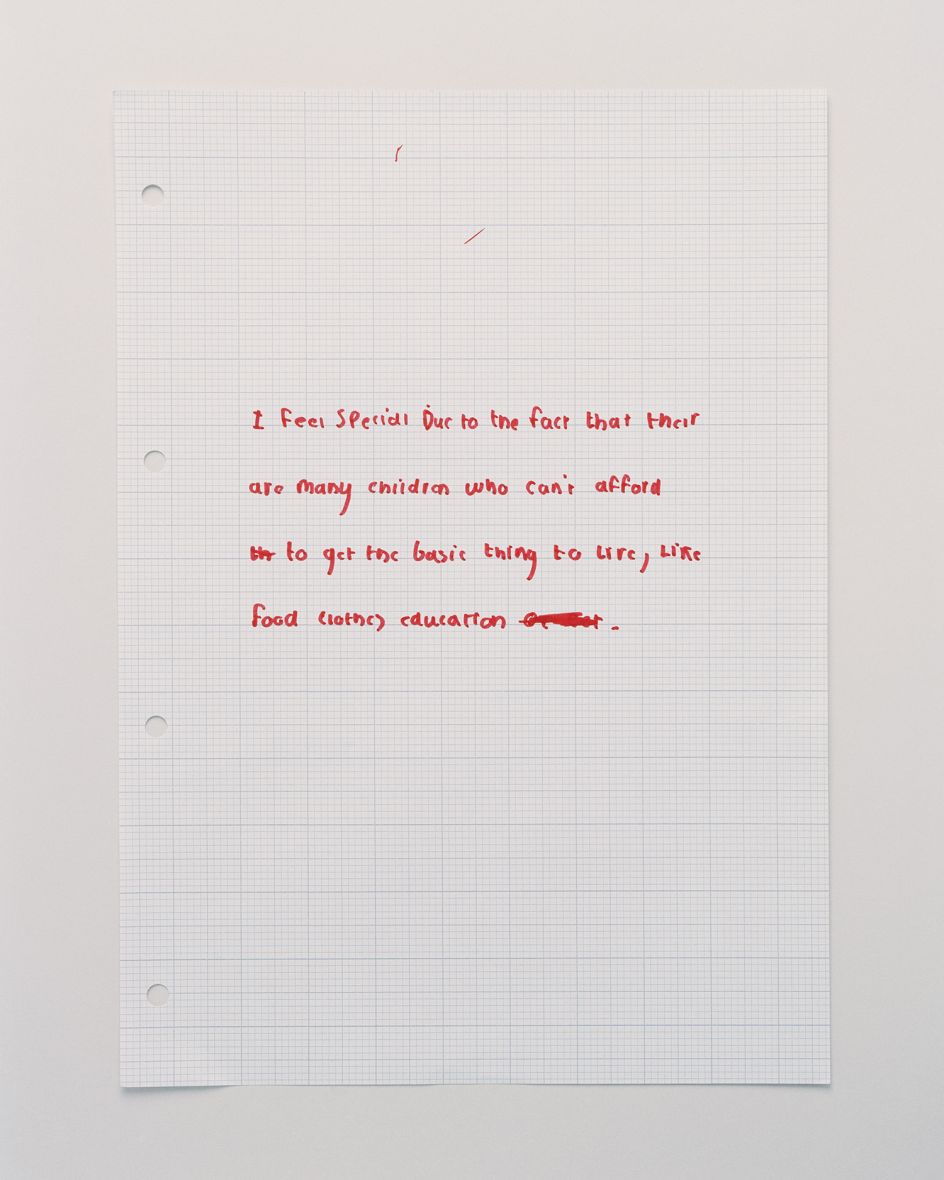 I Feel Special Due to the fact that their
are many children who can't afford
to get the basic thing to live, Like
food clothes education .